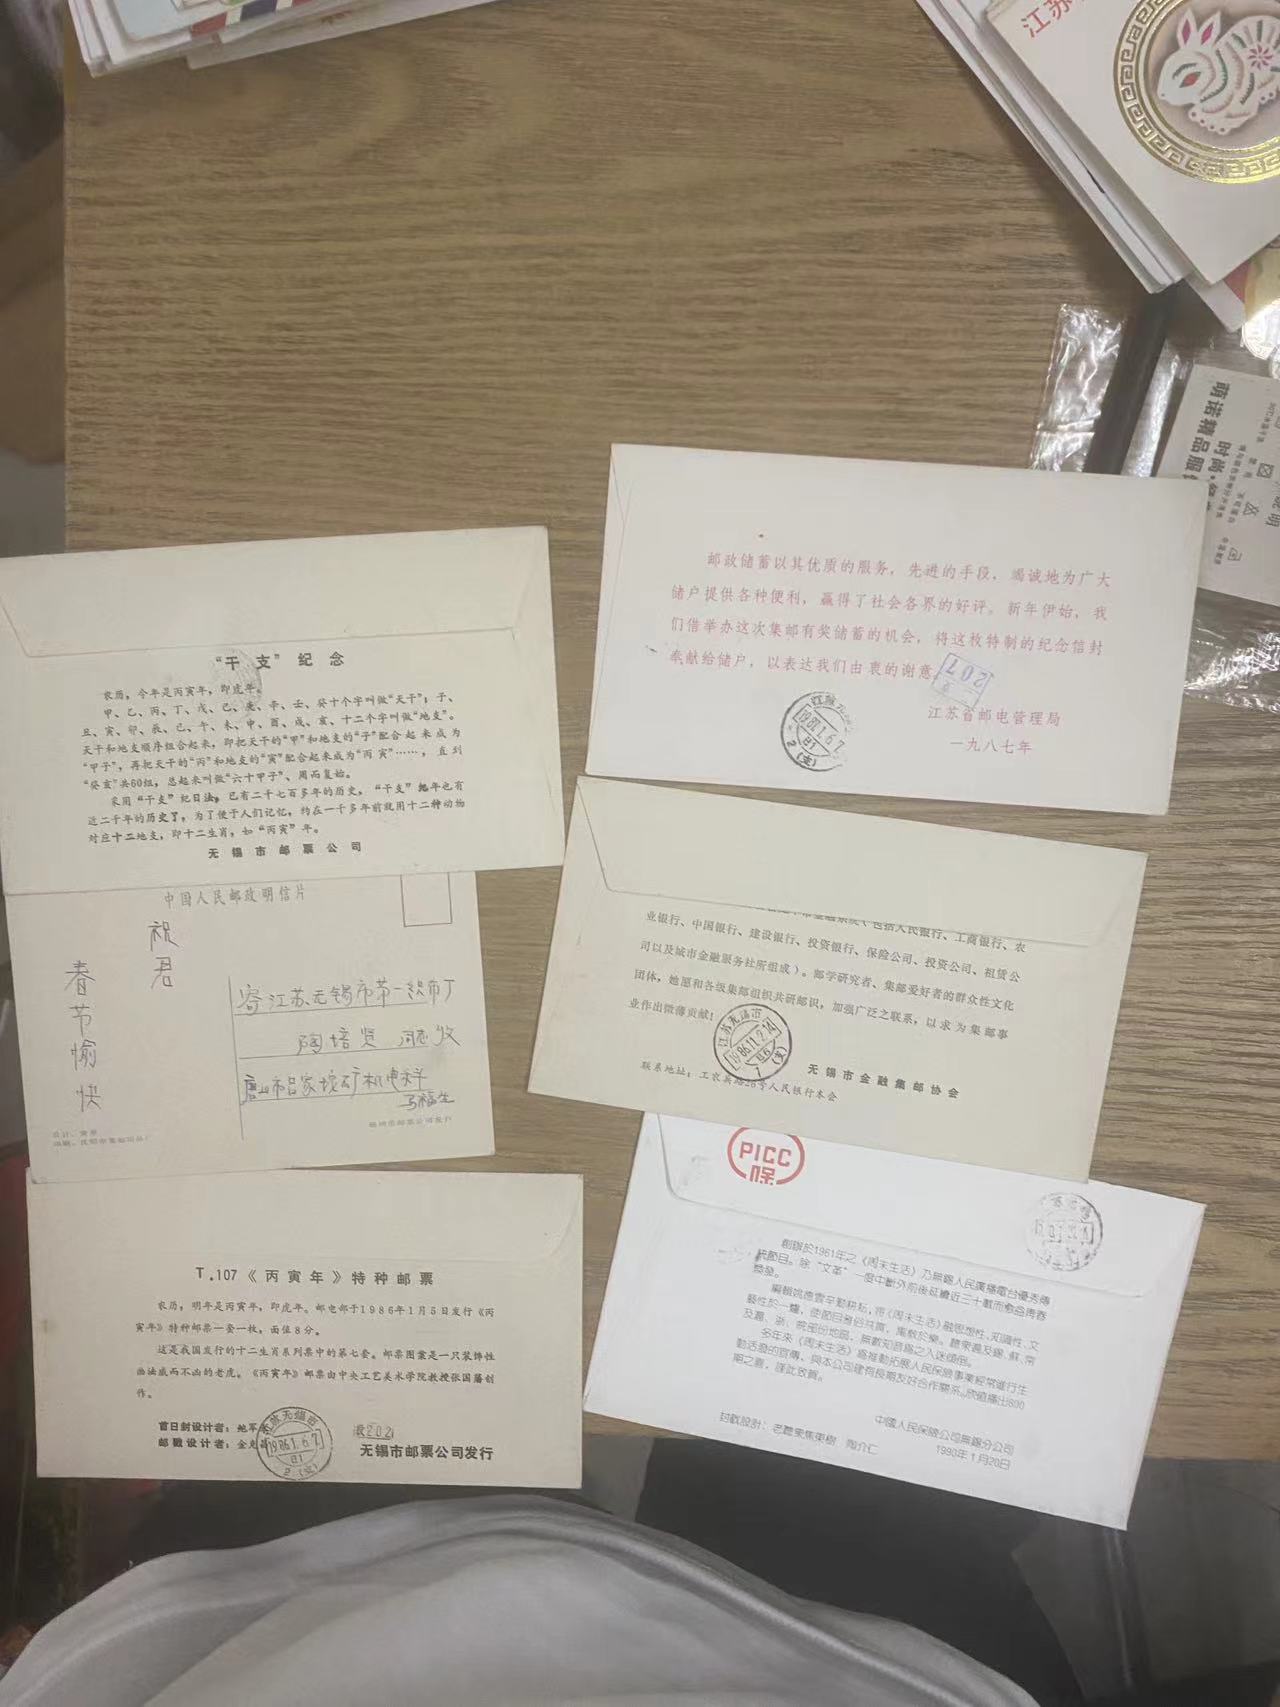 江苏
萌诺精品服
时尚
邮政储蓄以其优质的服务，先进的手段，竭诚地为广大
储户提供各种便利，赢得了社会各界的好评。新年伊始，我
们借举办这次集邮有奖储蓄的机会，将这枚特制的纪念信封
奉献给储户，以表达我们由衷的谢意
207
江苏省邮电管理局
一九八七年
江苏无
1987.1.6.7
81
2（支）
“干支”纪念
农历，今年是丙寅年，即虎年。
甲、乙、丙、丁、戊、己、庚、辛、壬、癸十个字叫做“天干”；子、
丑、寅、卯、辰、巳、午、未、申、酉、戌、亥，十二个字叫做“地支”。
天干和地支顺序组合起来，即把天干的“甲”和地支的“子”配合起来成为
“甲子”，再把天干的“丙”和地支的“寅”配合起来成为“丙寅”……，直到
“癸亥”共60组，总起来叫做“六十甲子”、周而复始。
采用“干支”纪日法，已有二千七百多年的历史，“干支”纪年也有
近二千年的历史了，为了便于人们记忆，约在一千多年前就用十二种动物
对应十二地支，即十二生肖，如“丙寅”年。
无锡市邮票公司
中国人民邮政明信片
祝君
春节愉快
寄江苏无锡市第一织布厂
陶培贤 同志收
唐山市吕家坨矿机电科
马福生
邮票公司发行
业银行、中国银行、建设银行、投资银行、保险公司、投资公司、租赁公
司以及城市金融服务社所组成）。邮学研究者、集邮爱好者的群众性文化
团体，她愿和各级集邮组织共研邮识，加强广泛之联系，以求为集邮事
业作出微薄贡献！
江苏无锡市
1986.11.2.14
1（支）
无锡市金融集邮协会
联系地址：工农兵路26号人民银行本会
T.107《丙寅年》特种邮票
农历，明年是丙寅年，即虎年。邮电部于1986年1月5日发行《丙
寅年》特种邮票一套一枚，面值8分。
这是我国发行的十二生肖系列票中的第七套。邮票图案是一只装饰性
画法威而不凶的老虎。《丙寅年》邮票由中央工艺美术学院教授张国藩创
作。
首日封设计者：鲍军
邮戳设计者：金克
江苏无锡市
1986.1.6.7
81
2（支）
202
无锡市邮票公司发行
PICC
保
創辦於1961年之《周末生活》乃無錫人民廣播電台優秀傳
統節目。除“文革”一度中斷外前後延續近三十載而愈益青春
煥發。
編輯姚德雲辛勤耕耘，將《周末生活》融思想性、知識性、文
藝性於一爐，使節目雅俗共賞，寓教於樂。聽衆遍及錫、蘇、常
及滬、浙、皖部份地區，無數知音爲之入迷傾倒。
多年來《周末生活》爲推動拓展人民保險事業經常進行生
動活潑的宣傳，與本公司建有長期友好合作關系。欣值播出800
期之喜，謹此致賀。
中國人民保險公司無錫分公司
1993年1月20日
封戳設計：老聽衆焦東樹 陶介仁